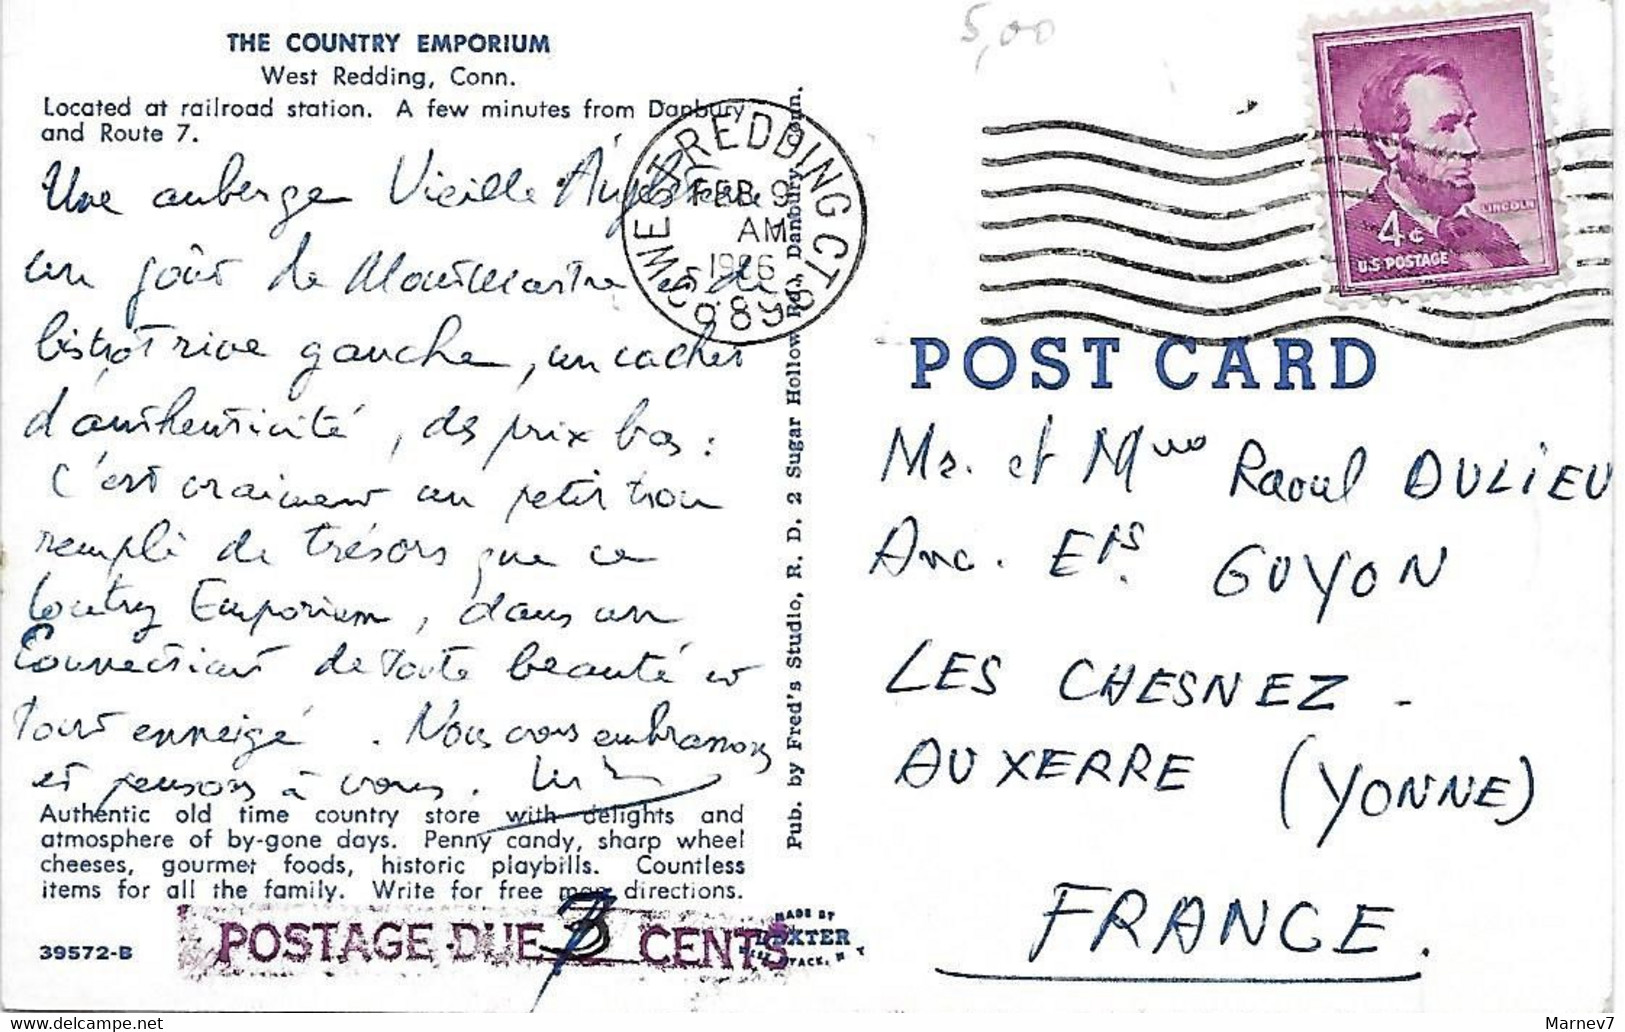 THE COUNTRY EMPORIUM
West Redding, Conn.
Located at railroad station. A few minutes from Danbury
and Route 7.
Une auberge Vieille Angleterre
un goût de Montmartre et de
bistrot rive gauche, un cachet
d'authenticité, des prix bas :
C'est vraiment un petit trou
rempli de trésors que ce
Country Emporium, dans un
Connecticut de toute beauté et
tout enneigé. Nous vous embrassons
et pensons à vous.
Authentic old time country store with delights and
atmosphere of by-gone days. Penny candy, sharp wheel
cheeses, gourmet foods, historic playbills. Countless
items for all the family. Write for free map directions.
39572-B
POSTAGE DUE 3 CENTS
MADE BY
DEXTER
Pub. by Fred's Studio, R. D. 2 Sugar Hollow Rd., Danbury, Conn.
WEST REDDING CT
FEB 9
AM
1966
06896
5,00
LINCOLN
4¢
U.S. POSTAGE
POST CARD
Mr. et Mme Raoul DULIEU
Anc. Ets. GUYON
LES CHESNEZ -
AUXERRE (YONNE)
FRANCE.
Marnev7